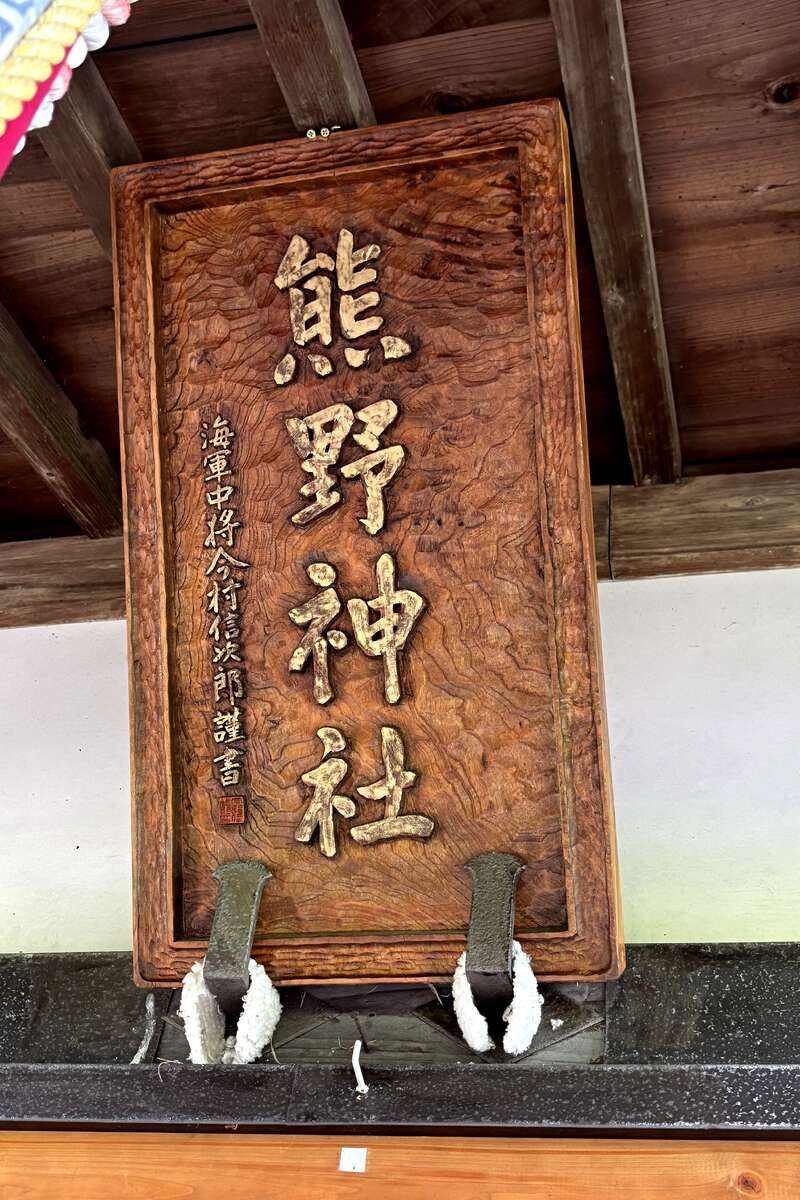 熊野神社
海軍中将今村信次郎謹書